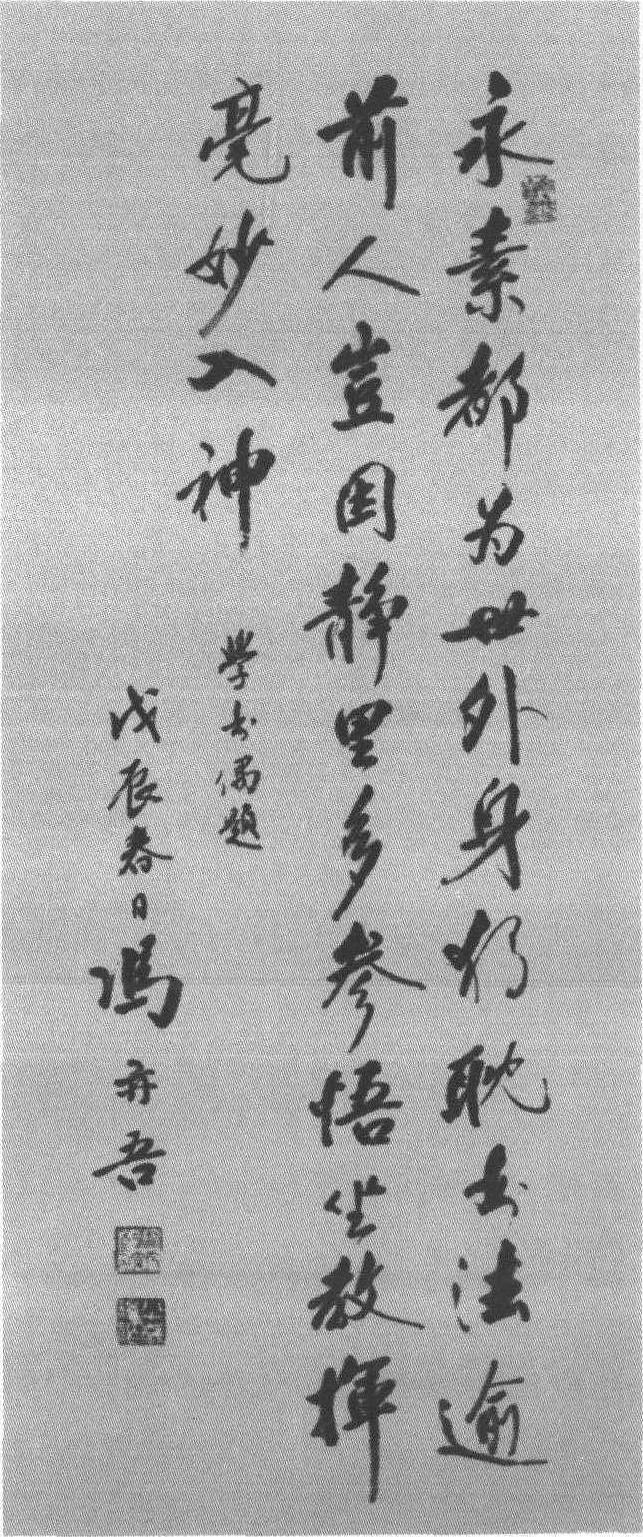 永素都为世外身犹耽书法逾
前人岂因静里多参悟坐教揮
毫妙入神
學书偶題
戊辰春日馮亦吾